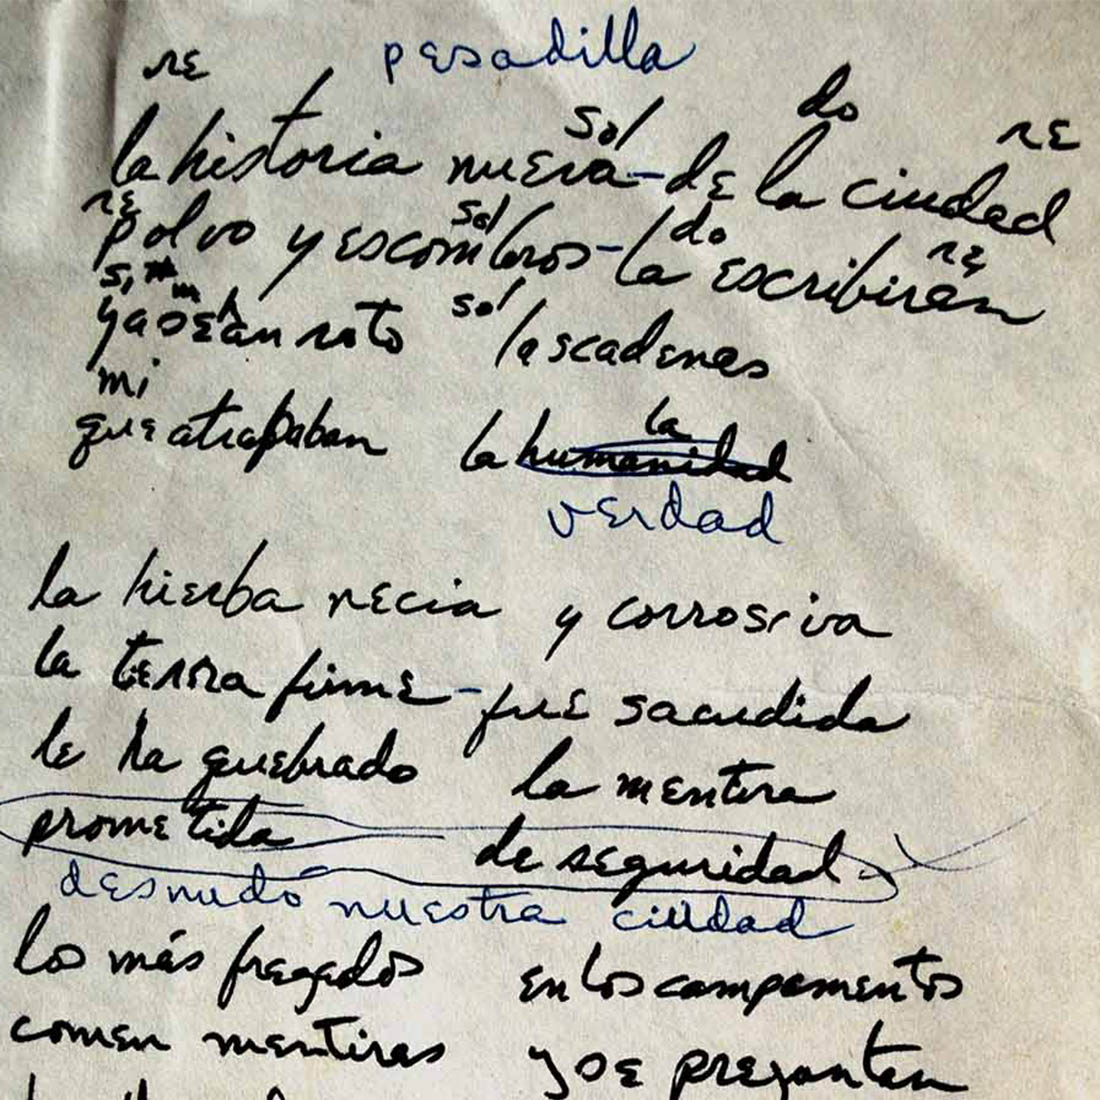 pesadilla
re sol do re
la historia nueva - de la ciudad
re sol do re
polvo y escombros - la escribirán
si m sol
ya se han roto las cadenas
mi la
que atrapaban la humanidad
verdad
la hierba necia y corrosiva
la tierra firme - fue sacudida
le ha quebrado la mentira
prometida de seguridad
desnudó nuestra ciudad
los más fregados en los campamentos
comen mentiras y se preguntan